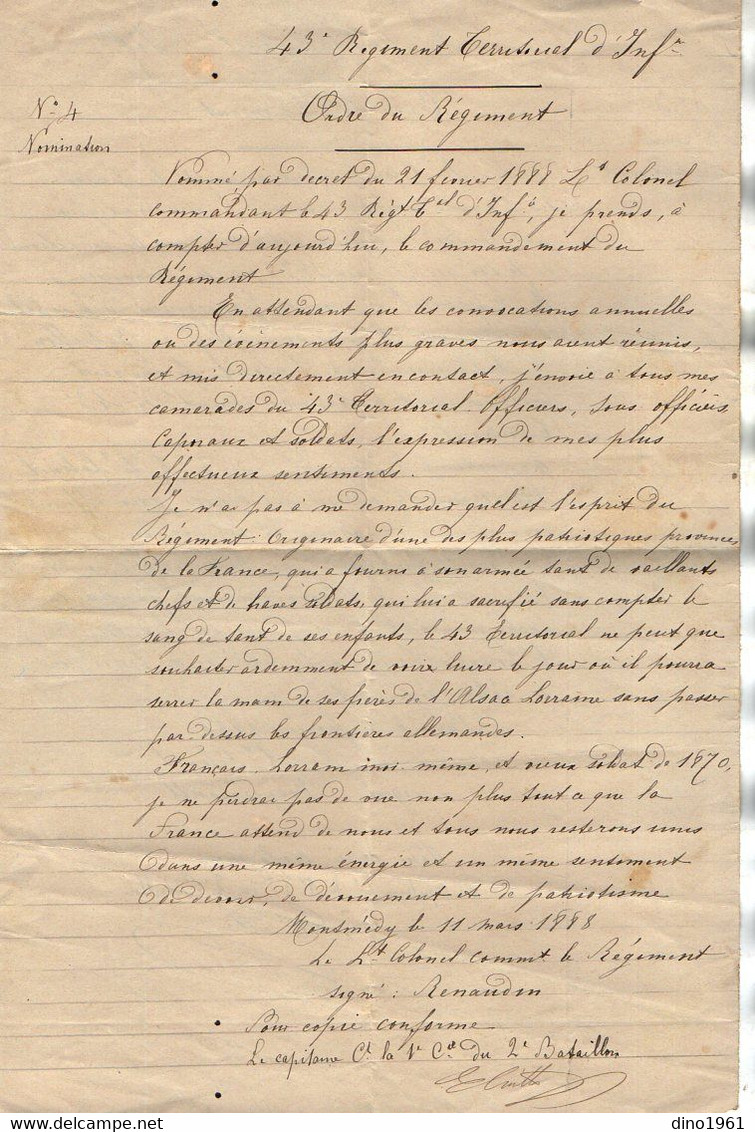 43e Régiment Territorial d'Infie
No 4
Nomination
Ordre du Régiment
Nommé par decret du 21 fevrier 1888 Lt Colonel
commandant le 43 Régt Tial d'Infie, je prends, à
compter d'aujourd'hui, le commandement du
Régiment
En attendant que les convocations annuelles
ou des évènements plus graves nous aient réunis,
et mis directement en contact, j'envoie à tous mes
camarades du 43e Territorial. Officiers, sous officiers
Caporaux et soldats, l'expression de mes plus
affectueux sentiments.
Je n'ai pas à me demander quel est l'esprit du
Régiment: Originaire d'une des plus patriotiques provinces
de la France, qui a fourni à son armée tant de vaillants
chefs et de braves soldats, qui lui a sacrifié sans compter le
sang de tant de ses enfants, le 43 Territorial ne peut que
souhaiter ardemment de voir luire le jour où il pourra
serrer la main de ses frères de l'Alsace Lorraine sans passer
par dessus les frontières allemandes.
Français. Lorrain moi même, et vieux soldat de 1870,
je ne perdrai pas de vue non plus tout ce que la
France attend de nous et tous nous resterons unis
dans une même énergie et un même sentiment
de devoir, de dévouement et de patriotisme
Montmédy le 11 mars 1888
Le Lt Colonel commt le Régiment
signé: Renaudin
Pour copie conforme
Le capitaine Ct la 1e Cie du 2e Bataillon
dino1961